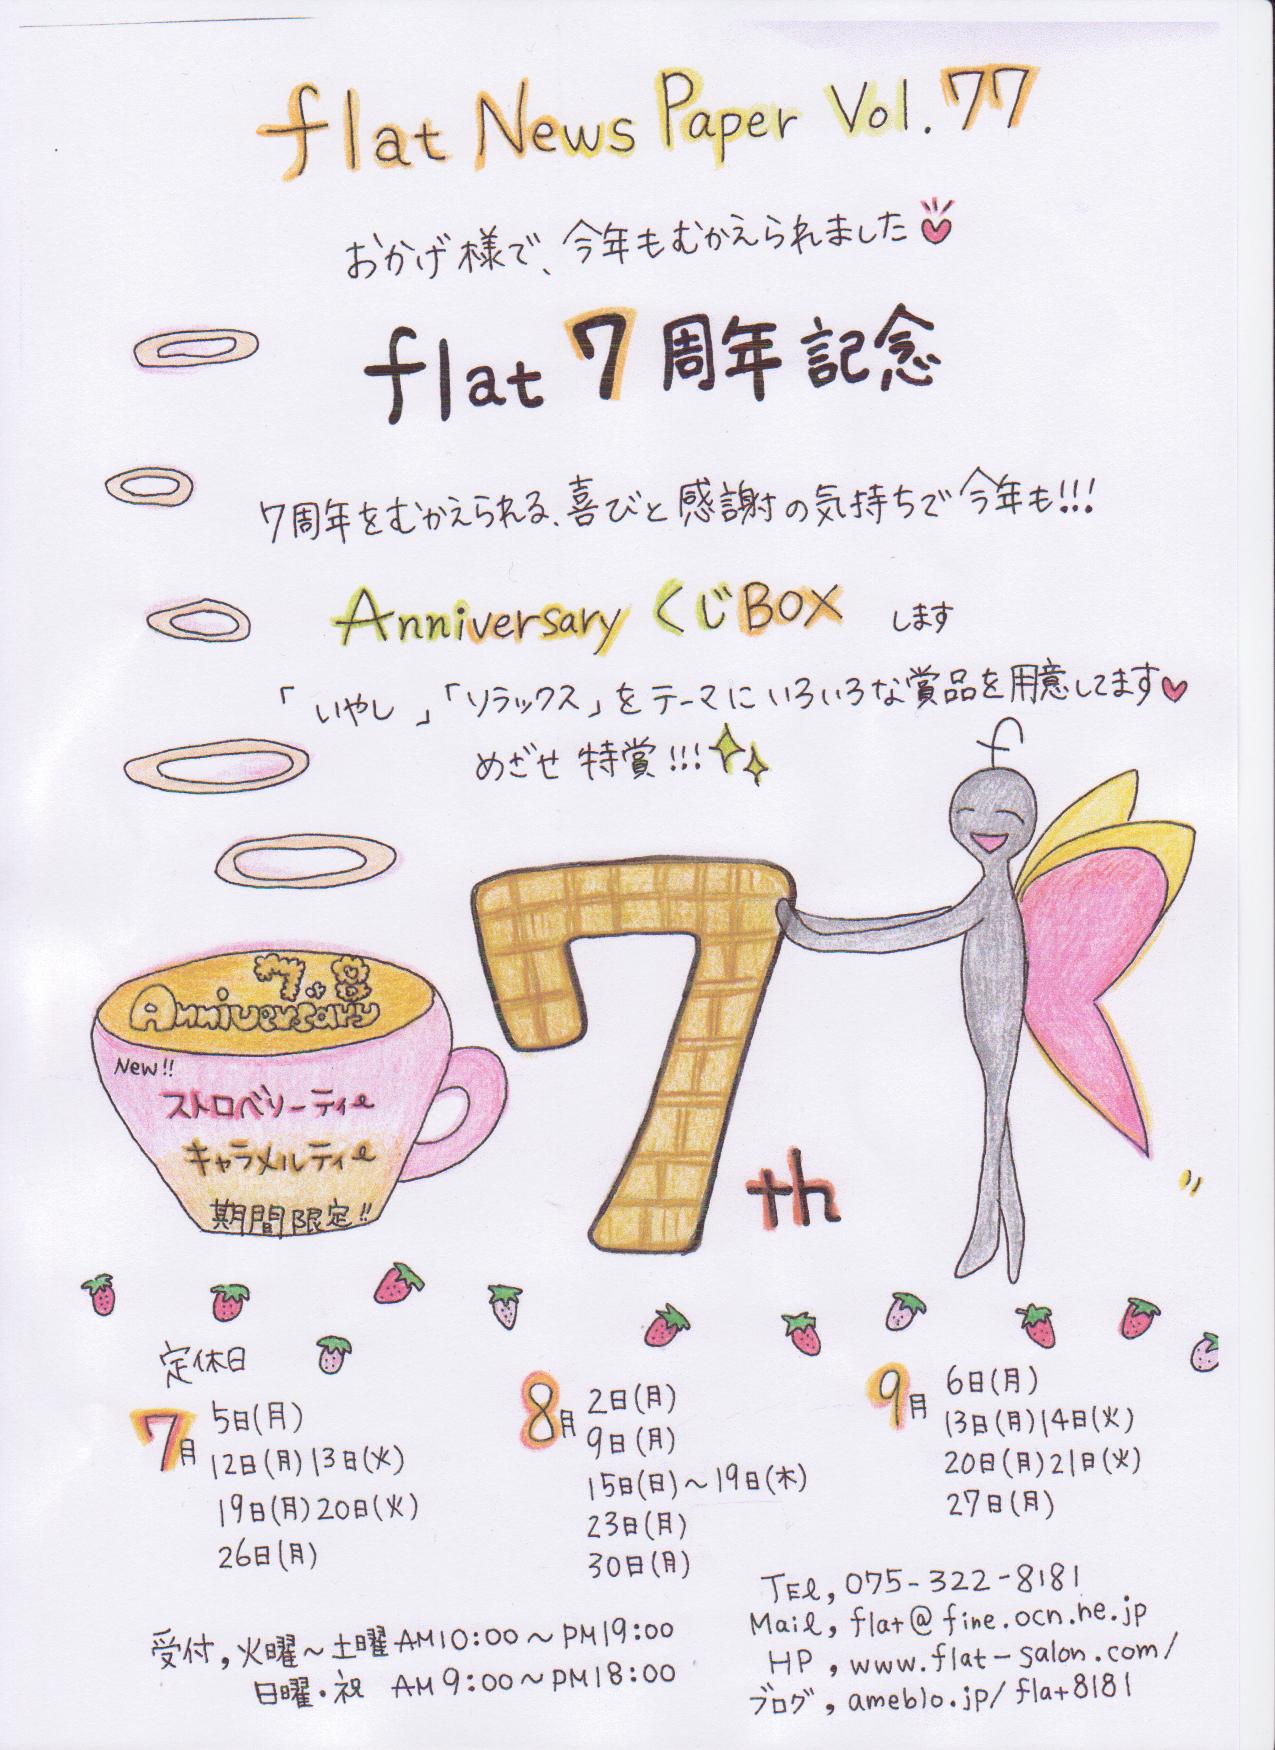 flat News Paper Vol.77
おかげ様で、今年もむかえられました
flat 7周年記念
7周年をむかえられる、喜びと感謝の気持ちで今年も!!!
Anniversary くじBOX します
「いやし」「リラックス」をテーマにいろいろな賞品を用意してます
めざせ特賞!!!
f
7.8
Anniversary
New!!
ストロベリーティー
キャラメルティー
期間限定!!
7th
定休日
7月
5日(月)
12日(月)13日(火)
19日(月)20日(火)
26日(月)
8月
2日(月)
9日(月)
15日(日)~19日(木)
23日(月)
30日(月)
9月
6日(月)
13日(月)14日(火)
20日(月)21日(火)
27日(月)
受付,火曜~土曜 AM10:00~PM19:00
日曜・祝 AM9:00~PM18:00
TEl, 075-322-8181
Mail, flat@fine.ocn.ne.jp
HP, www.flat-salon.com/
ブログ, ameblo.jp/flat8181